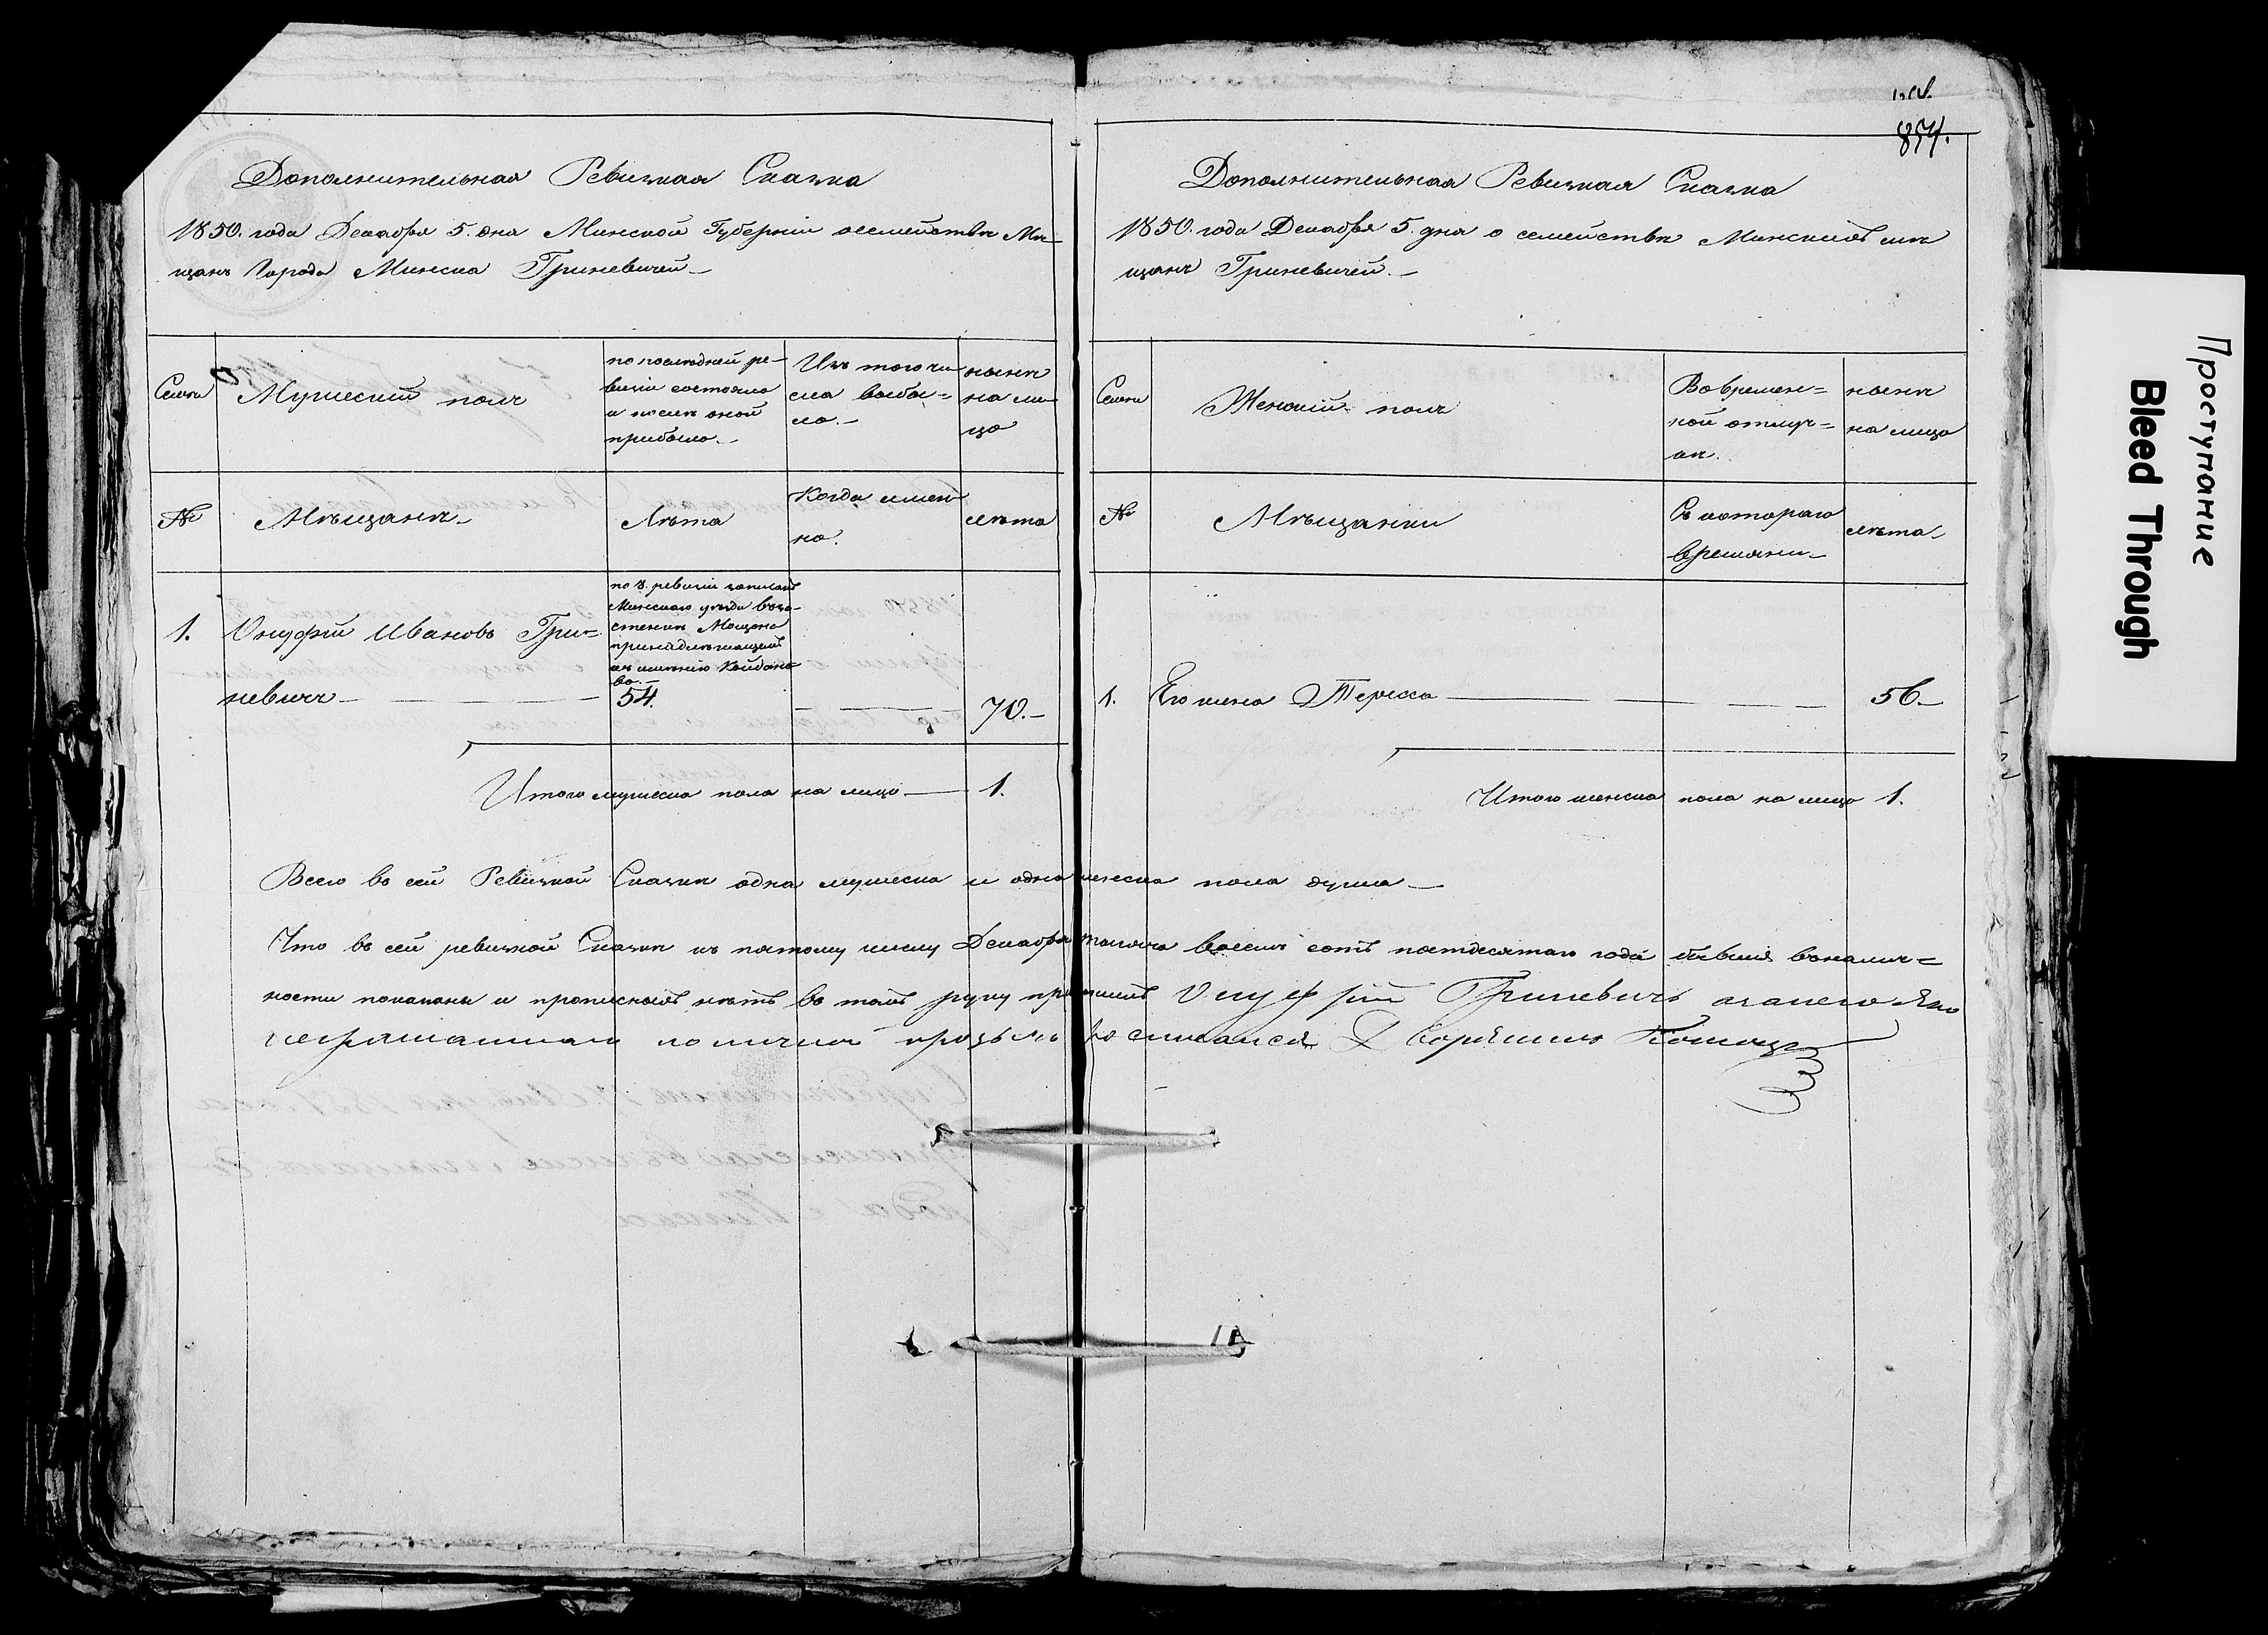 854.
Дополнительная Ревизкая Сказка
1850. года Декабря 5. дня Минской Губерніи о семействѣ Мѣ-
щанъ Города Минска Гриневичей
Семьи
Мужескій полъ
по последней ре-
визіи состояло
и послѣ оной
прибыло.
Изъ того чи
сла выбы=
ло.
нынѣ
на ли-
цо
№
Мѣщанѣ
Лѣта
Когда имен
но.
лѣта
1.
Онуфрій Ивановъ Гри=
невичъ
по 8. ревизіи записанъ
Минского уѣзда въ
принадлежащимъ
къ имѣнію Койдано
во.
54.
70.
Итого мужеска пола на лицо 1.
Дополнительная Ревизкая Сказка
1850. года Декабря 5. дня о семействѣ Минскихъ мѣ
щанъ Гриневичей.
Семьи
Женскій полъ
Во времен=
ной отлуч=
кѣ.
нынѣ
на лицо
№
Мѣщанки
Съ котораго
времяни
лѣта
1.
Его жена Тересса
56.
Итого женска пола на лицо 1.
Всего въ сей Ревизкой Сказкѣ одна мужеска и одна женска пола душа
Что въ сей ревизкой Сказкѣ къ пятому числу Декабря тысяча восемь сотъ пятдесятаго года бывшія въ налич=
ности показаны и прописныхъ нѣтъ въ томъ руку приложилъ Онуфрій Гриневичъ а за него
неграматнаго по личной прозьбѣ росписался Дворянинъ
Проступание
Bleed Through